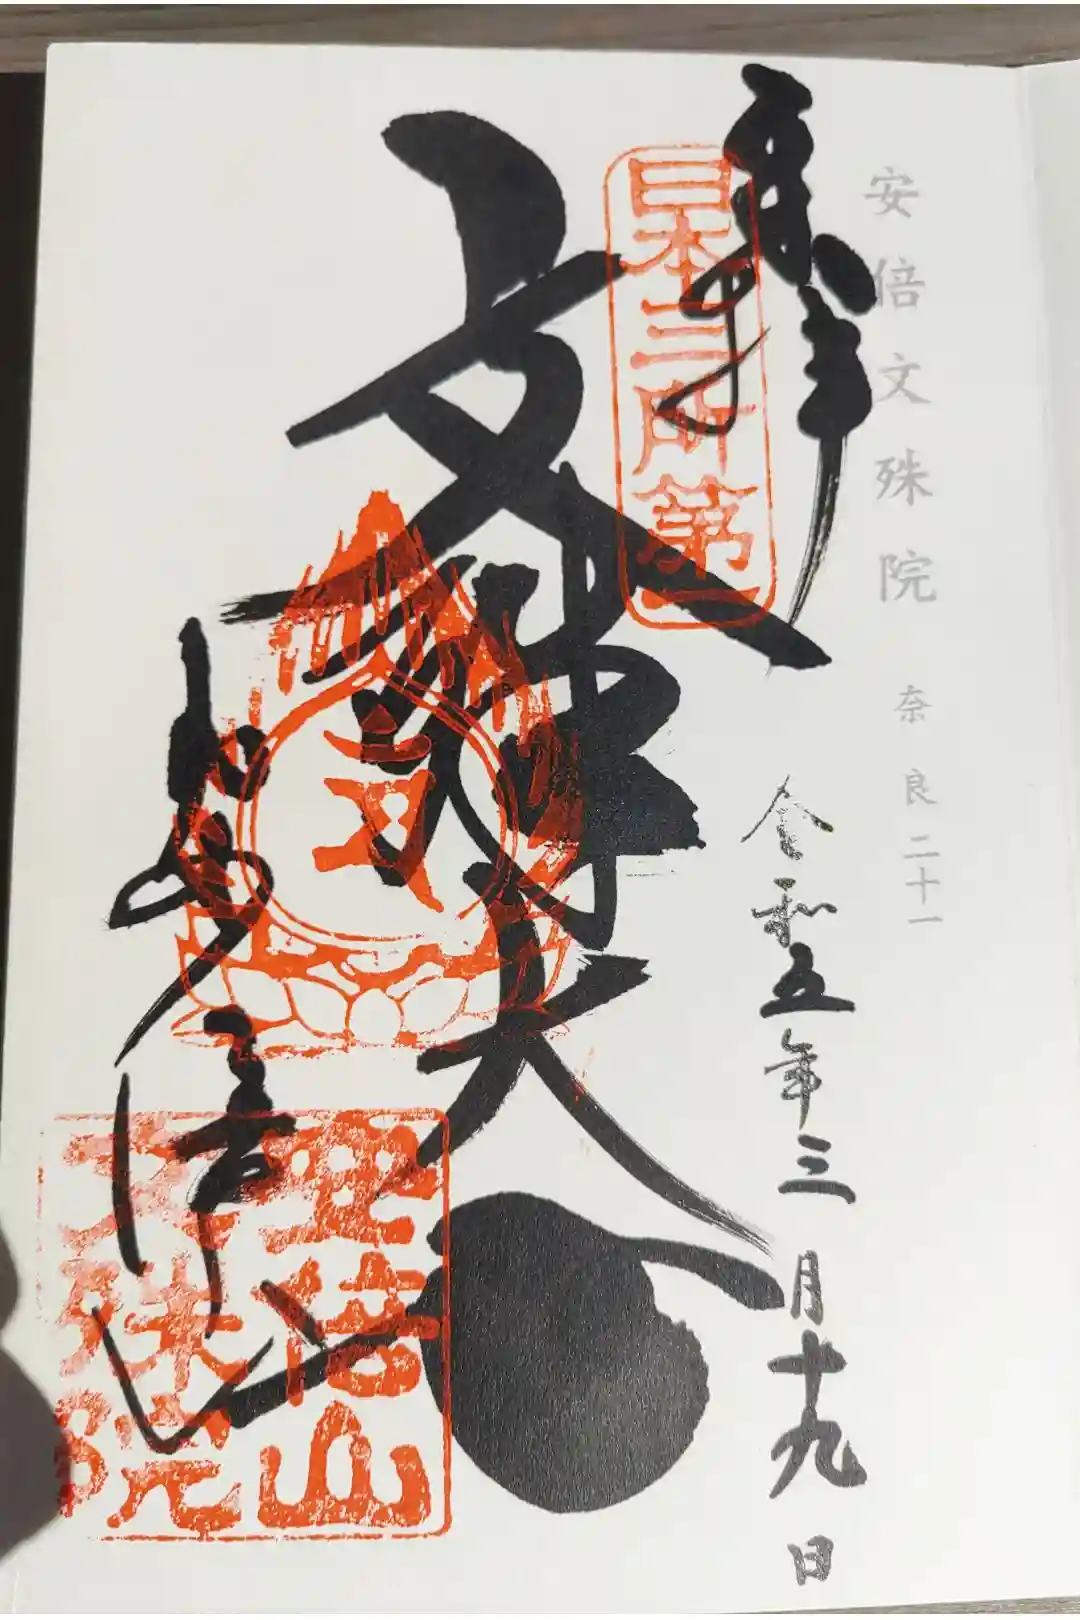 安倍文殊院 奈良二十一
奉拝
令和五年三月十九日
日本三所第一
文殊大
安倍山
文殊院